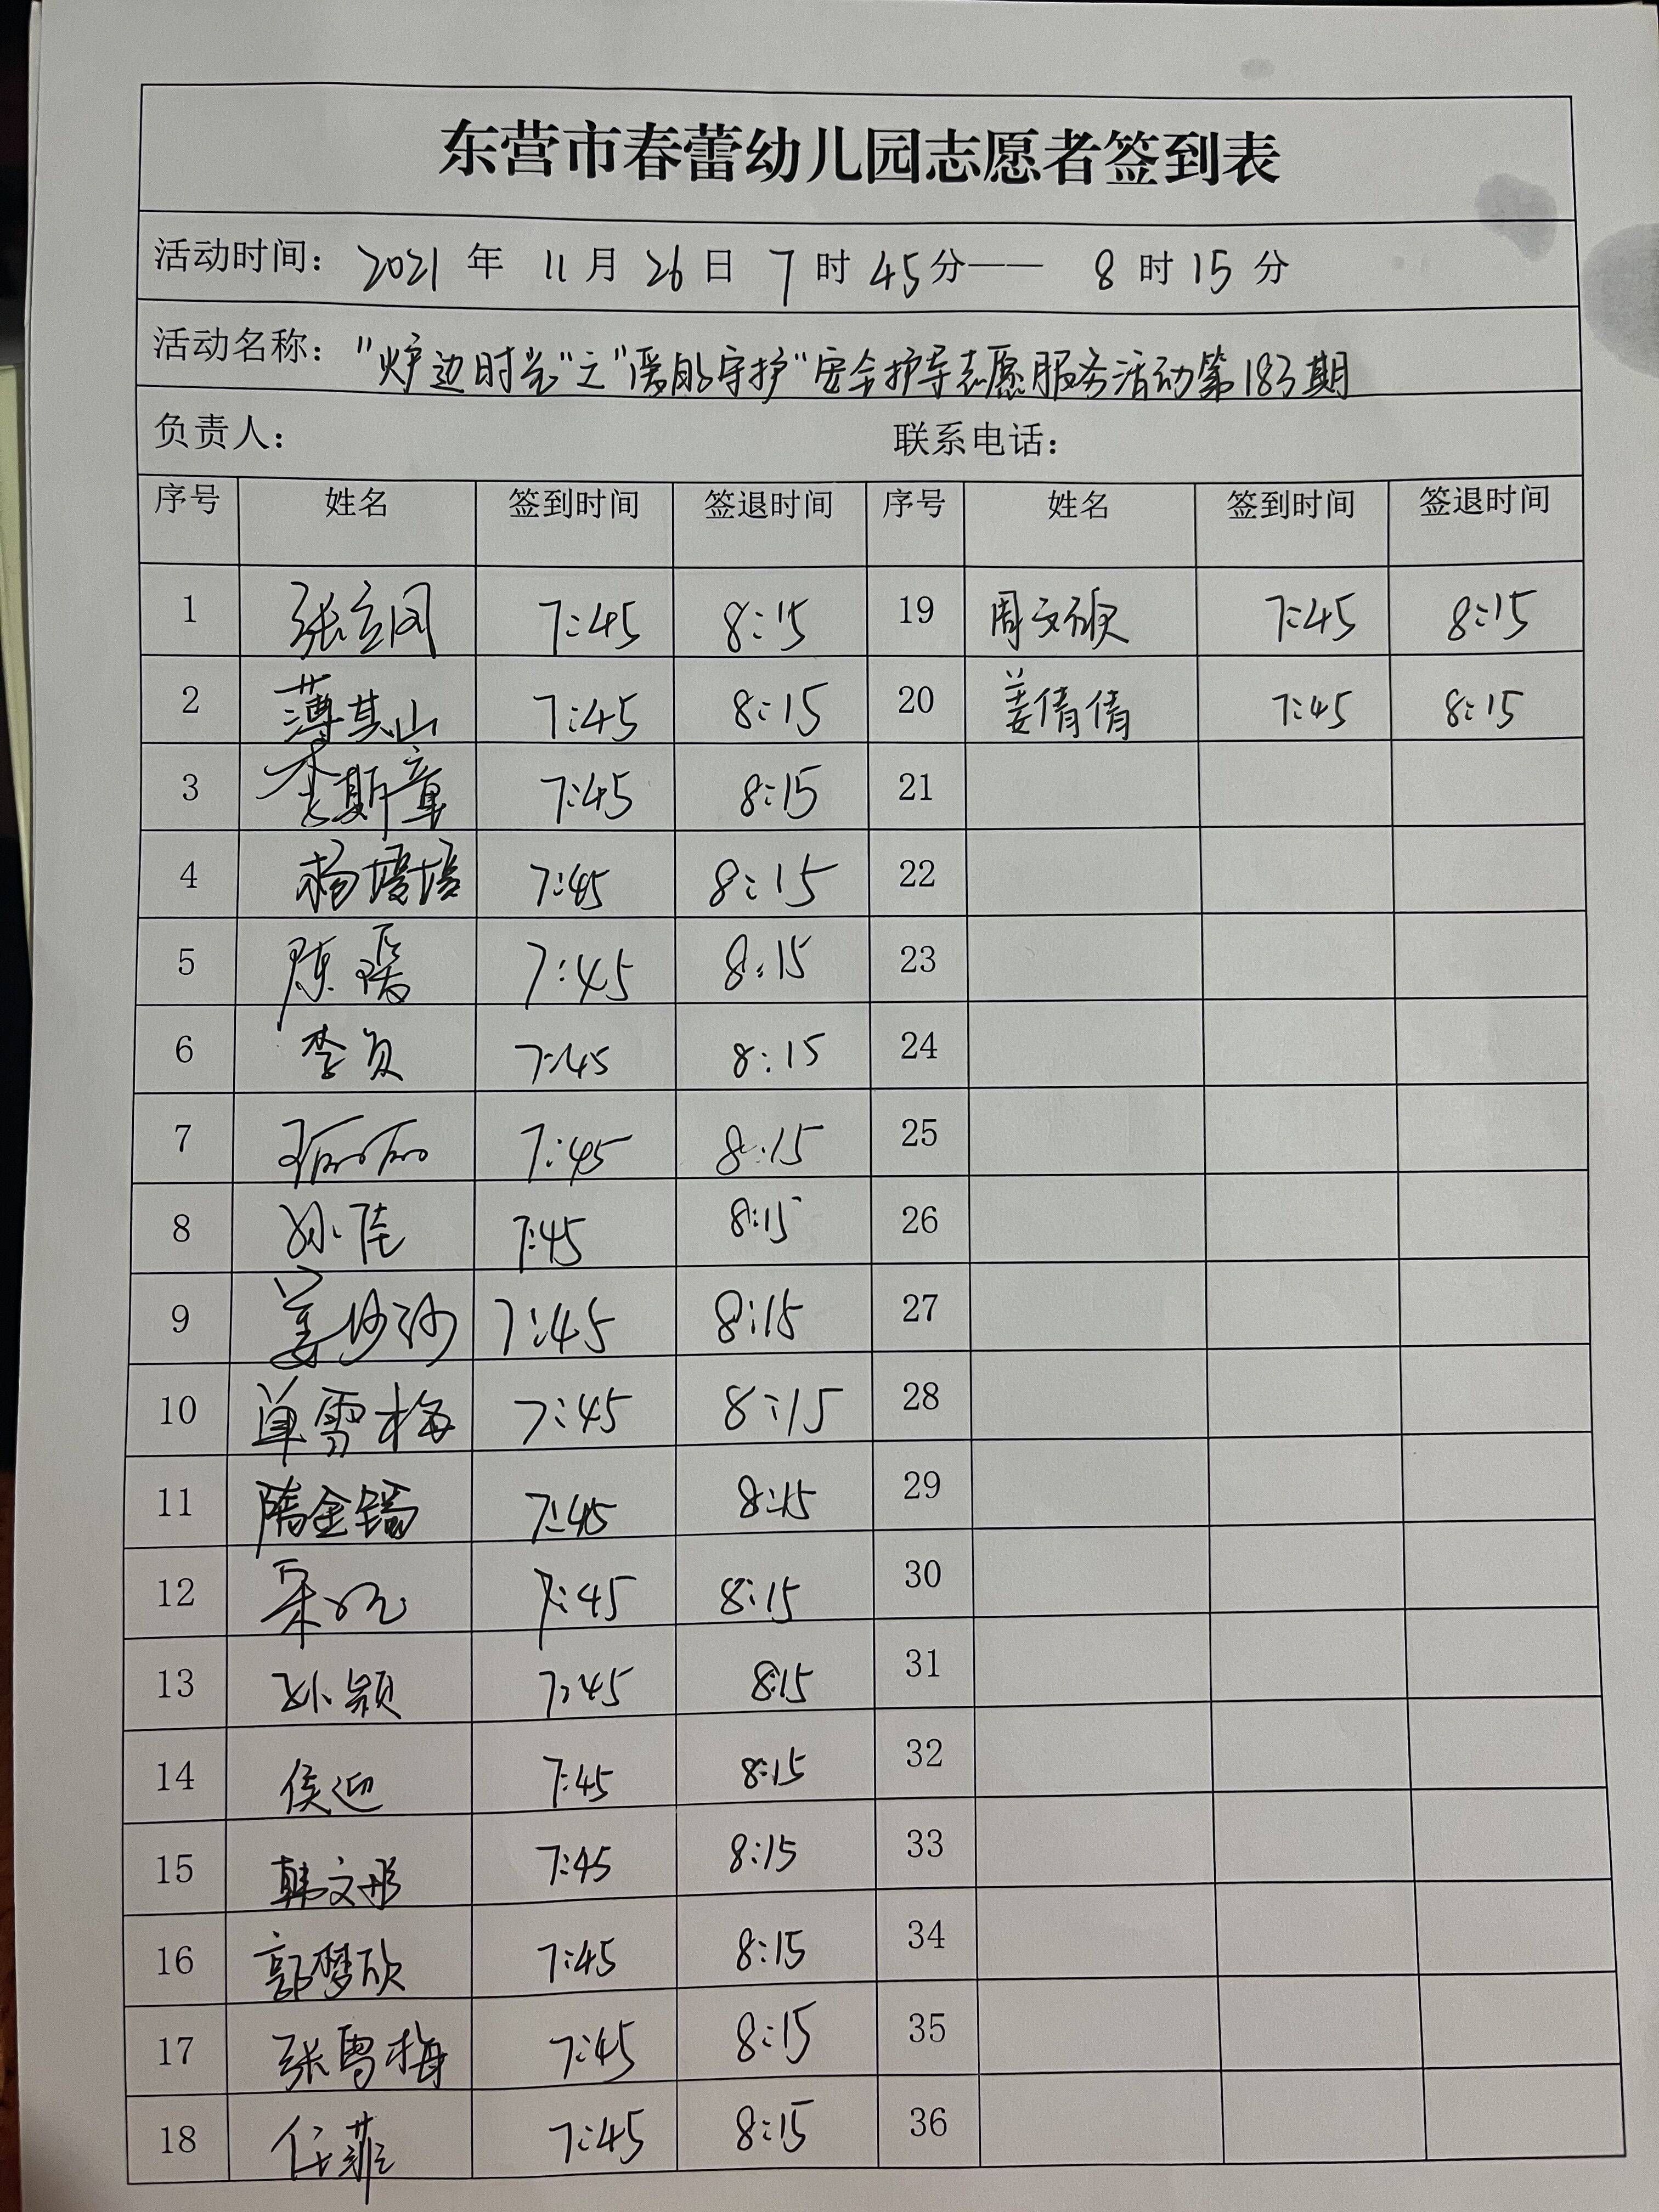 东营市春蕾幼儿园志愿者签到表
活动时间： 2021 年 11 月 26 日 7 时 45 分—— 8 时 15 分
活动名称： "炉边时光"之"暖的守护"安全护导志愿服务活动第183期
负责人： 联系电话：
序号 姓名 签到时间 签退时间 序号 姓名 签到时间 签退时间
1 张立同 7:45 8:15 19 周文硕 7:45 8:15
2 薄其山 7:45 8:15 20 姜倩倩 7:45 8:15
3 李斯童 7:45 8:15 21
4 杨培培 7:45 8:15 22
5 陈瑶 7:45 8:15 23
6 李贞 7:45 8:15 24
7 丽丽 7:45 8:15 25
8 孙佳 7:45 8:15 26
9 姜沙沙 7:45 8:15 27
10 单雪梅 7:45 8:15 28
11 隋金 7:45 8:15 29
12 7:45 8:15 30
13 孙颖 7:45 8:15 31
14 侯迎 7:45 8:15 32
15 韩文彤 7:45 8:15 33
16 郭梦欣 7:45 8:15 34
17 张雪梅 7:45 8:15 35
18 任菲 7:45 8:15 36